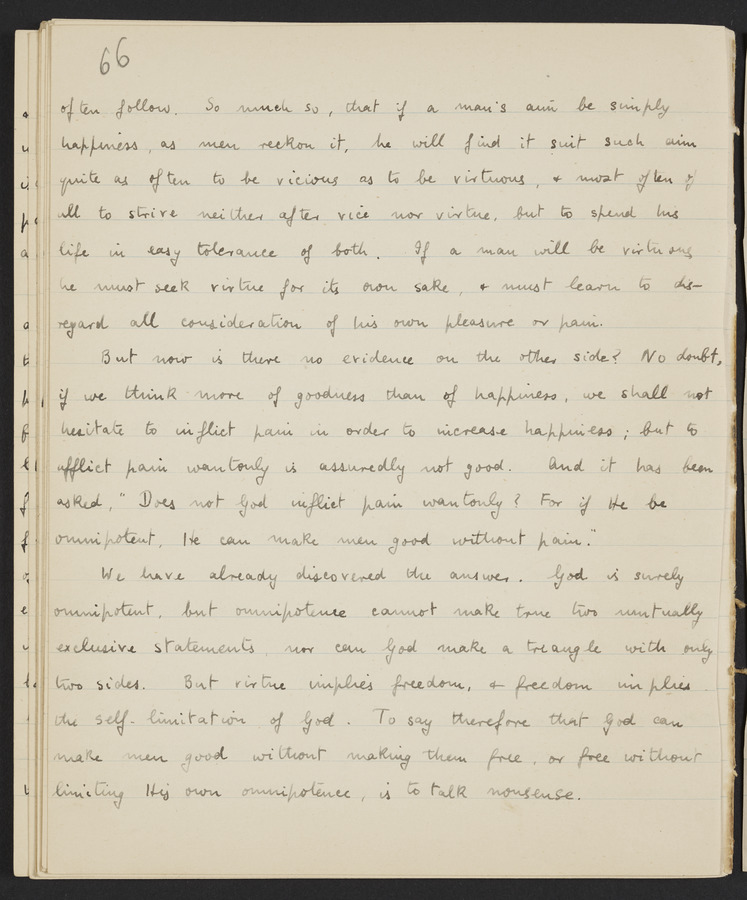 66
often follow. So much so, that if a man's aim be simply
happiness, as men reckon it, he will find it suit such aim
quite as often to be vicious as to be virtuous, & most often of
all to strive neither after vice nor virtue, but to spend his
life in easy tolerance of both. If a man will be virtuous
he must seek virtue for its own sake, & must learn to dis-
regard all consideration of his own pleasure or pain.
But now is there no evidence on the other side? No doubt,
if we think more of goodness than of happiness, we shall not
hesitate to inflict pain in order to increase happiness; but to
afflict pain wantonly is assuredly not good. And it has been
asked, "Does not God inflict pain wantonly? For if He be
omnipotent, He can make men good without pain."
We have already discovered the answer. God is surely
omnipotent, but omnipotence cannot make true two mutually
exclusive statements, nor can God make a triangle with only
two sides. But virtue implies freedom, & freedom implies
the self-limitation of God. To say therefore that God can
make men good without making them free, or free without
limiting His own omnipotence, is to talk nonsense.